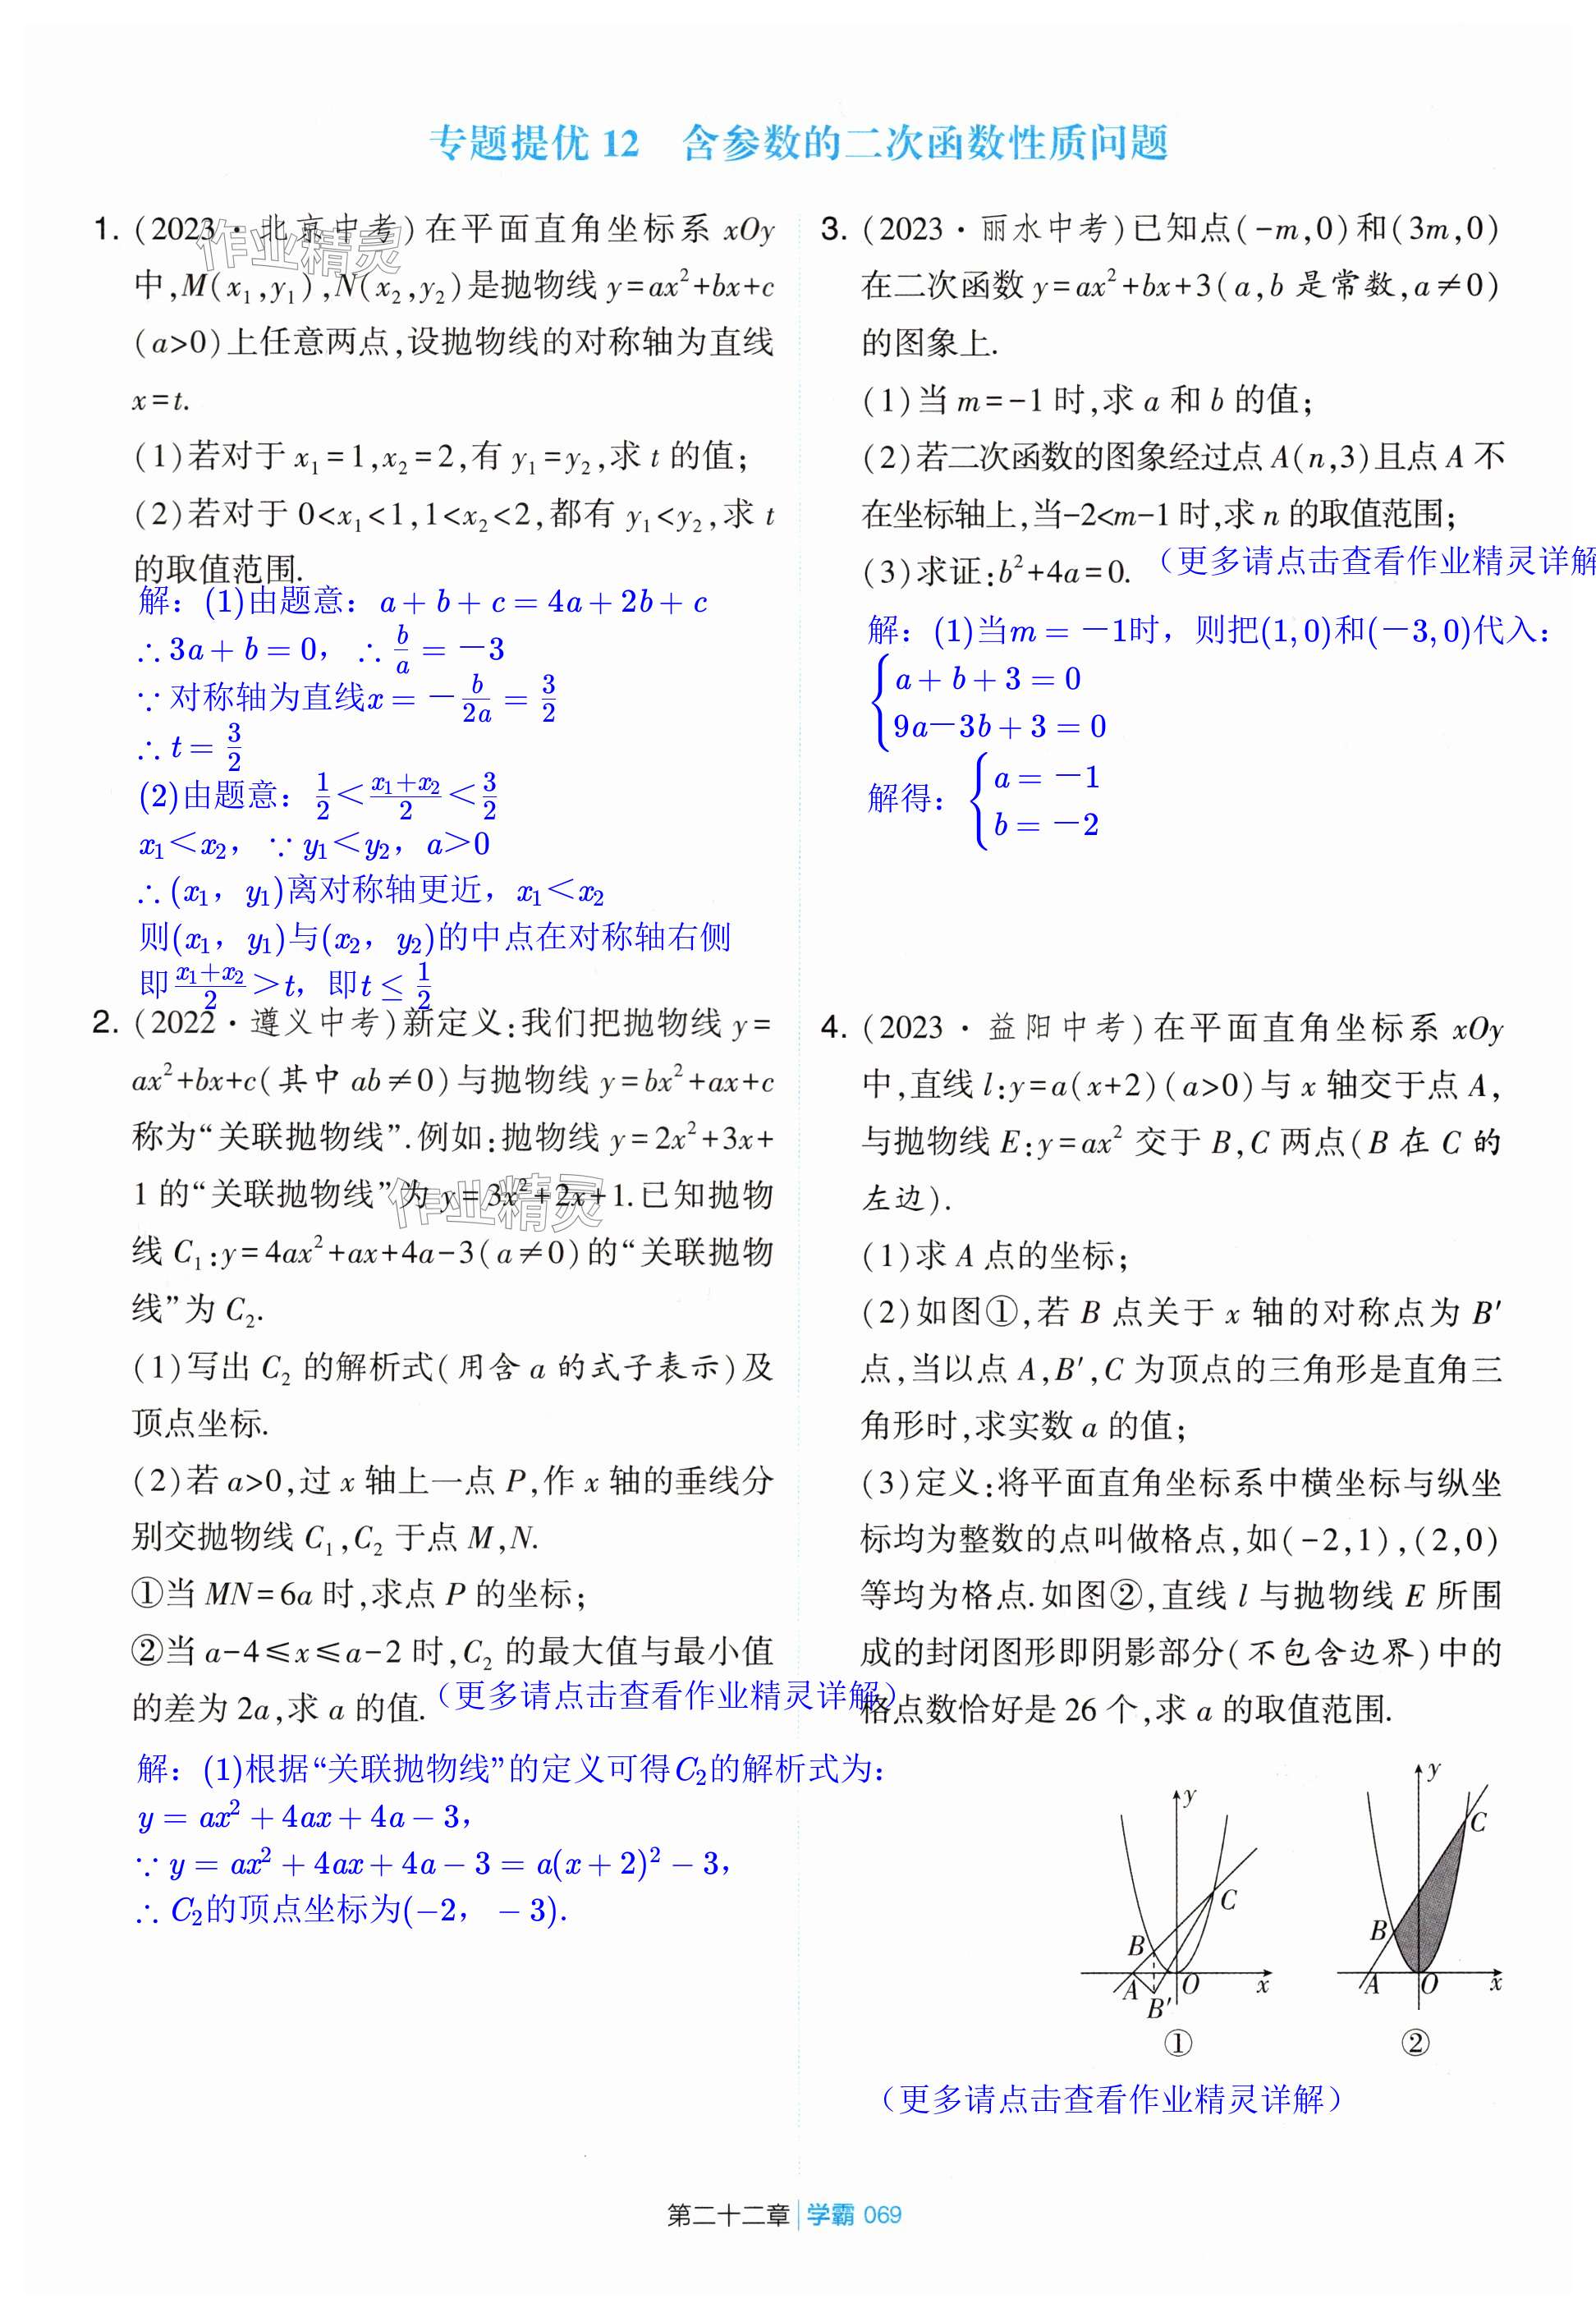 专题提优 12 含参数的二次函数性质问题
1. (2023·北京中考)在平面直角坐标系 xOy
中,M(x₁,y₁),N(x₂,y₂)是抛物线 y=ax²+bx+c
(a>0)上任意两点,设抛物线的对称轴为直线
x=t.
(1)若对于 x₁=1,x₂=2,有 y₁=y₂,求 t 的值;
(2)若对于 0<x₁<1,1<x₂<2,都有 y₁<y₂,求 t
的取值范围.
解：(1)由题意：a+b+c=4a+2b+c
∴3a+b=0，∴b/a=−3
∵对称轴为直线x=−b/2a=3/2
∴t=3/2
(2)由题意：1/2<(x₁+x₂)/2<3/2
x₁<x₂，∵y₁<y₂，a>0
∴(x₁，y₁)离对称轴更近，x₁<x₂
则(x₁，y₁)与(x₂，y₂)的中点在对称轴右侧
即(x₁+x₂)/2>t，即t≤1/2
2. (2022·遵义中考)新定义:我们把抛物线 y=
ax²+bx+c(其中 ab≠0)与抛物线 y=bx²+ax+c
称为“关联抛物线”.例如:抛物线 y=2x²+3x+
1 的“关联抛物线”为 y=3x²+2x+1.已知抛物
线 C₁:y=4ax²+ax+4a-3(a≠0)的“关联抛物
线”为 C₂.
(1)写出 C₂ 的解析式(用含 a 的式子表示)及
顶点坐标.
(2)若 a>0,过 x 轴上一点 P,作 x 轴的垂线分
别交抛物线 C₁,C₂ 于点 M,N.
①当 MN=6a 时,求点 P 的坐标;
②当 a-4≤x≤a-2 时,C₂ 的最大值与最小值
的差为 2a,求 a 的值.（更多请点击查看作业精灵详解）
解：(1)根据“关联抛物线”的定义可得C₂的解析式为：
y=ax²+4ax+4a−3，
∵y=ax²+4ax+4a−3=a(x+2)²−3，
∴C₂的顶点坐标为(−2，−3).
3. (2023·丽水中考)已知点(-m,0)和(3m,0)
在二次函数 y=ax²+bx+3(a,b 是常数,a≠0)
的图象上.
(1)当 m=-1 时,求 a 和 b 的值;
(2)若二次函数的图象经过点 A(n,3)且点 A 不
在坐标轴上,当-2<m-1 时,求 n 的取值范围;
(3)求证:b²+4a=0.（更多请点击查看作业精灵详解
解：(1)当m=−1时，则把(1,0)和(−3,0)代入：
{a+b+3=0
9a−3b+3=0
解得：{a=−1
b=−2
4. (2023·益阳中考)在平面直角坐标系 xOy
中,直线 l:y=a(x+2)(a>0)与 x 轴交于点 A,
与抛物线 E:y=ax² 交于 B,C 两点(B 在 C 的
左边).
(1)求 A 点的坐标;
(2)如图①,若 B 点关于 x 轴的对称点为 B′
点,当以点 A,B′,C 为顶点的三角形是直角三
角形时,求实数 a 的值;
(3)定义:将平面直角坐标系中横坐标与纵坐
标均为整数的点叫做格点,如(-2,1),(2,0)
等均为格点.如图②,直线 l 与抛物线 E 所围
成的封闭图形即阴影部分(不包含边界)中的
格点数恰好是 26 个,求 a 的取值范围.
y
C
B
A
B′
O
x
①
y
C
B
A
O
x
②
（更多请点击查看作业精灵详解）
第二十二章 学霸 069
作业精灵
作业精灵